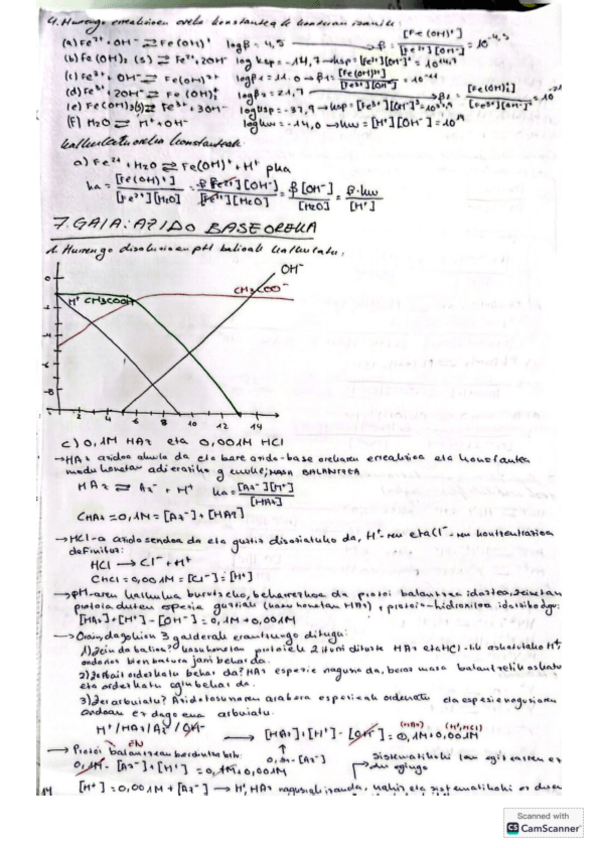 4. Hurrengo erreakzioen oreka konstanteak kontuan izanik:
(a) Fe²⁺ + OH⁻ ⇌ Fe(OH)⁺ logβ = 4,5 → β = [Fe(OH)⁺] / [Fe²⁺][OH⁻] = 10⁻⁴,⁵
(b) Fe(OH)₂ (s) ⇌ Fe²⁺ + 2OH⁻ log Ksp = -14,7 → Ksp = [Fe²⁺][OH⁻]²
(c) Fe³⁺ + OH⁻ ⇌ Fe(OH)²⁺ logβ₁ = 11.0 → β₁ =
(d) Fe³⁺ + 2OH⁻ ⇌ Fe(OH)₂⁺ logβ₂ = 21,7
(e) Fe(OH)₃(s) ⇌ Fe³⁺ + 3OH⁻ log Ksp = -37,9 → Ksp = [Fe³⁺][OH⁻]³
(f) H₂O ⇌ H⁺ + OH⁻ log Kw = -14,0 → Kw = [H⁺][OH⁻] =
Kalkulatu oreka konstanteak
a) Fe²⁺ + H₂O ⇌ Fe(OH)⁺ + H⁺ pka
ka = [Fe(OH)⁺] / [Fe²⁺][H₂O] = β [Fe²⁺][OH⁻] / [Fe²⁺][H₂O] = β[OH⁻] / [H₂O] = β·kw / [H⁺]
7. GAIA: AZIDO BASE OREKA
1. Hurrengo disoluzioen pH balioak kalkulatu:
OH⁻
0
H⁺ CH3COOH CH3COO⁻
2 4 6 8 10 12 14
c) 0,1M HAz eta 0,001M HCl
→ HAz azidoa ahula da eta bere azido-base orekaren erreakzioa eta konstantea
modu honetan adieraziko genuke; MASA BALANTZEA
HAz ⇌ Az⁻ + H⁺ ka = [Az⁻][H⁺] / [HAz]
CHAz = 0,1M = [Az⁻] + [HAz]
→ HCl-a azido sendoa da eta guztiz disoziatuko da, H⁺-ren eta Cl⁻-ren kontzentrazioa
definituz:
HCl → Cl⁻ + H⁺
CHCl = 0,001M = [Cl⁻] = [H⁺]
→ pH-aren kalkulua burutzeko, beharrezkoa da protoi balantzea idaztea, zeinetan
protoia duten espezie guztiak (kasu honetan HAz), protoi-hidroxiloa idatziko dugu:
[HAz] + [H⁺] - [OH⁻] = 0,1M + 0,001M
→ Orain, dagokion 3 galderak erantzungo ditugu:
1) Zein da balioa? kasu honetan protoiek 2 iturri dituzte HAz eta HCl-tik askatutako H⁺,
ondorioz bien batura jarri behar da.
2) Zerbait ordezkatu behar da? HAz espezie nagusia da, beraz masa balantzetik askatu
eta ordezkatu egin behar da.
3) Zer arbuiatu? Azidotasunaren arabera espezieak ordenatu eta espezie nagusiaren
ondoan ez dagoena arbuiatu.
H⁺/HAz/Az⁻/OH⁻ → [HAz] + [H⁺] - [OH⁻] = 0,1M + 0,001M
(HAz) (H⁺, HCl)
→ Protoi balantzean
0,1M - [Az⁻]
0,1M - [Az⁻] + [H⁺] = 0,1M + 0,001M
[H⁺] = 0,001M + [Az⁻] → H⁺, HAz nagusiak izanda, nahiz eta sistematikoki ez duen
14
Scanned with
CS CamScanner